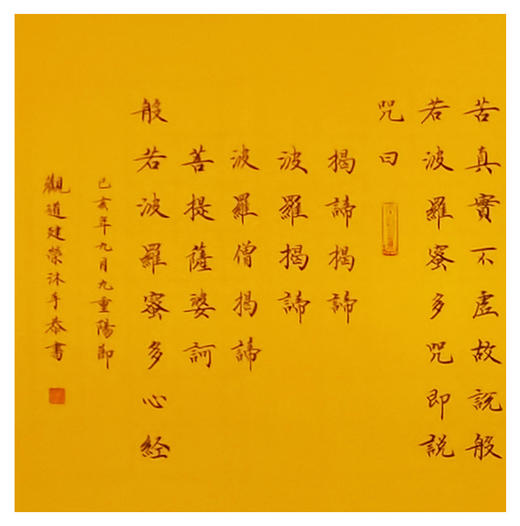 苦真實不虛故説般
若波羅蜜多咒即説
咒曰
揭諦揭諦
波羅揭諦
波羅僧揭諦
菩提薩婆訶
般若波羅蜜多心経
己亥年九月九重陽節
觀道建榮沐手恭書